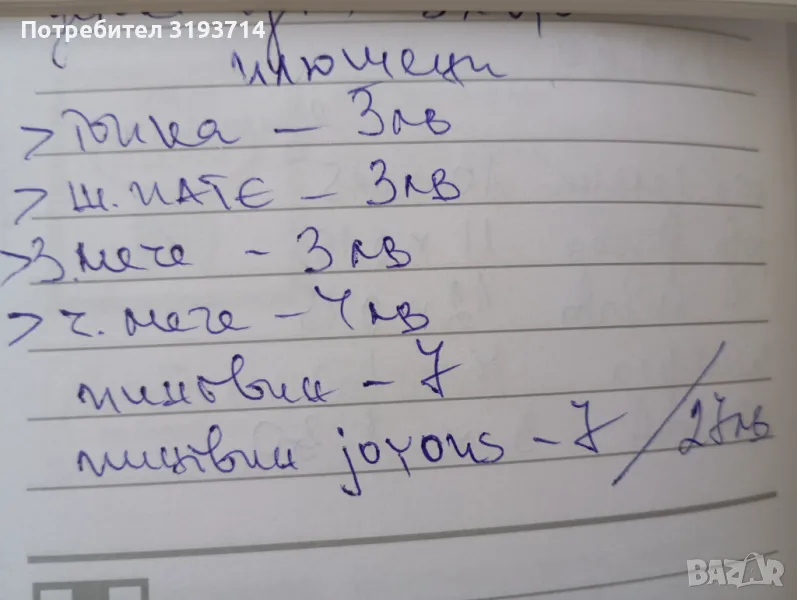 Потребител 3193714
плюшени
> Топка – 3лв
> Ш. ПАТЕ – 3лв
> З. мече – 3лв
> ч. мече – 4лв
пингвин – 7
пингвин joyous – 7 / 27лв
BAZAR